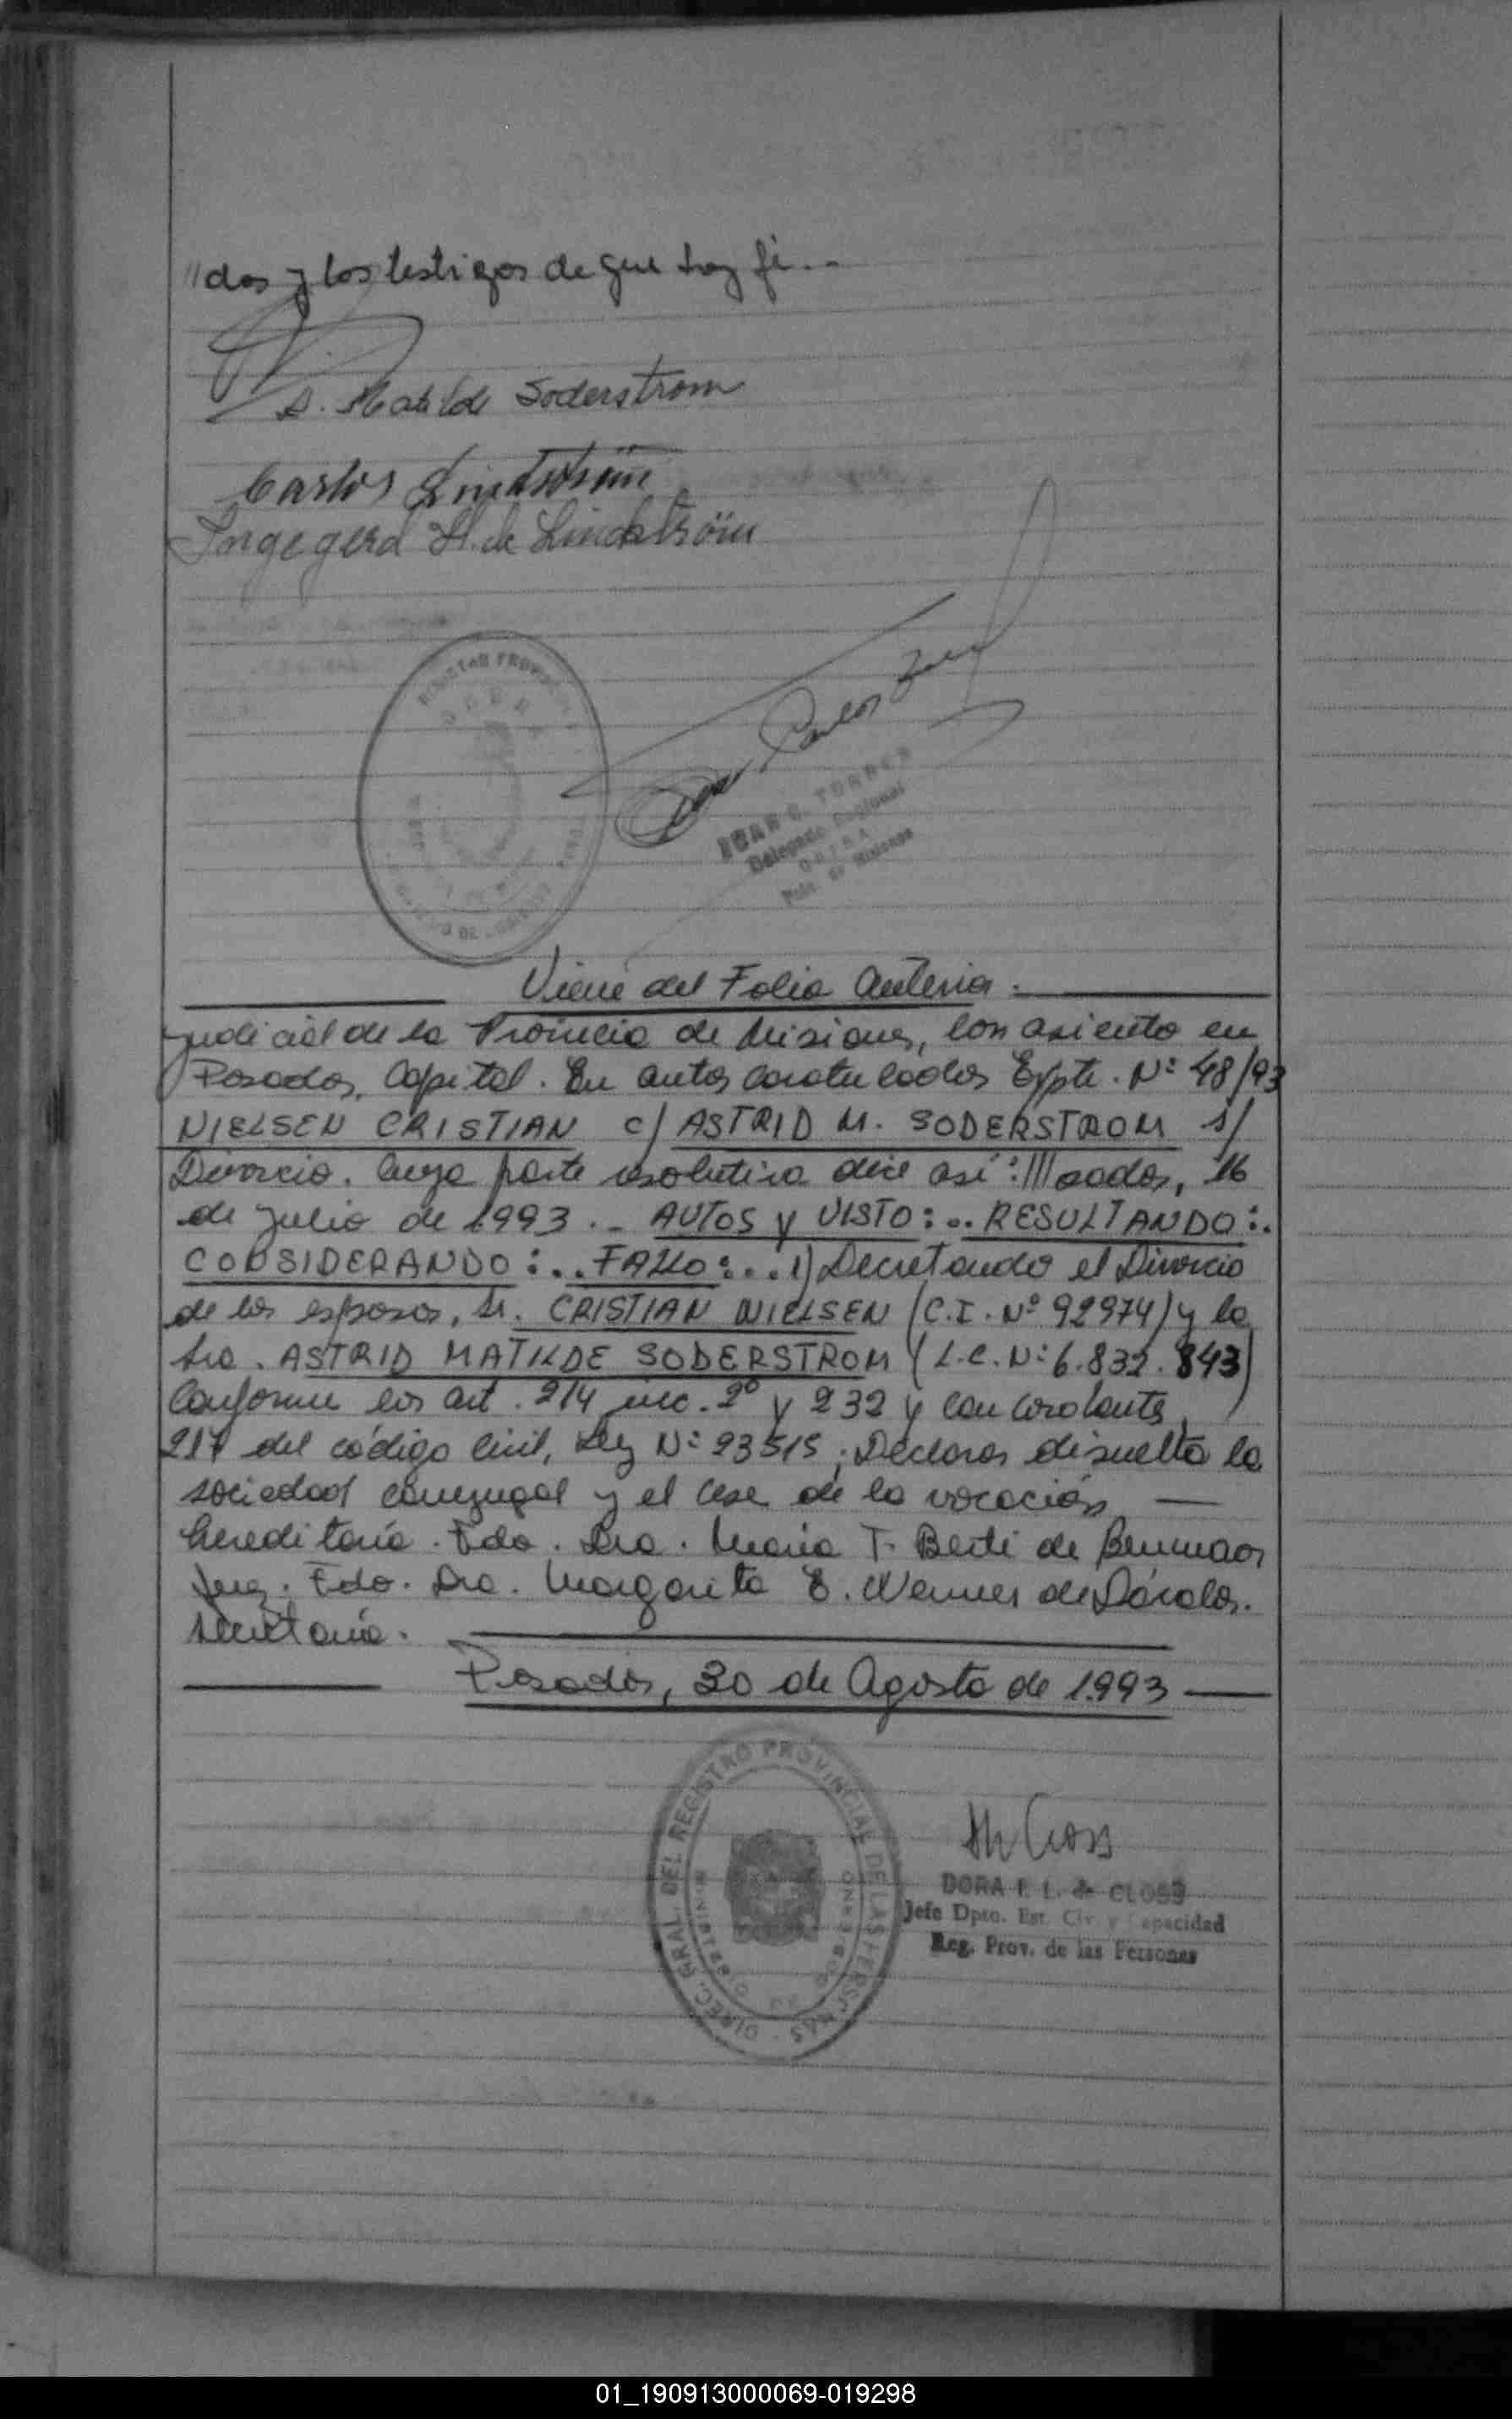 "dos y los testigos de que doy fé..-
A. Matilde Soderstrom
Carlos Lindström
Ingegerd H. de Lindström
JUAN C. TORRES
Delegado Regional
OBERA
Pcia. de Misiones
Viene del Folio Anterior.
Judicial de la Provincia de Misiones, con asiento en
Posadas, Capital. En autos caratulados Expte. Nº 48/93
NIELSEN CRISTIAN c/ ASTRID M. SODERSTROM s/
Divorcio. Cuya parte resolutiva dice así: ///osadas, 16
de julio de 1.993.- AUTOS y VISTO:.. RESULTANDO:.
CONSIDERANDO:.. FALLO:... 1) Decretando el Divorcio
de los esposos, Sr. CRISTIAN NIELSEN (C.I. Nº 92974) y la
Sra. ASTRID MATILDE SODERSTROM (L.C. Nº 6.832.843)
Conforme los art. 214 inc. 2º y 232 y concordantes
217 del código Civil, Ley Nº 23515; Declarar disuelta la
sociedad conyugal y el cese de la vocación —
hereditaria. Fdo. Dra. María T. Berti de
Juez. Fdo. Dra. Margarita E. Werner de Dávalos.
Secretaria.
Posadas, 30 de Agosto de 1.993
DIREC. GRAL. DEL REGISTRO PROVINCIAL DE LAS PERSONAS
MINISTERIO DE GOBIERNO
DORA I. L. de CLOSS
Jefe Dpto. Est. Civ. y Capacidad
Reg. Prov. de las Personas
01_190913000069-019298